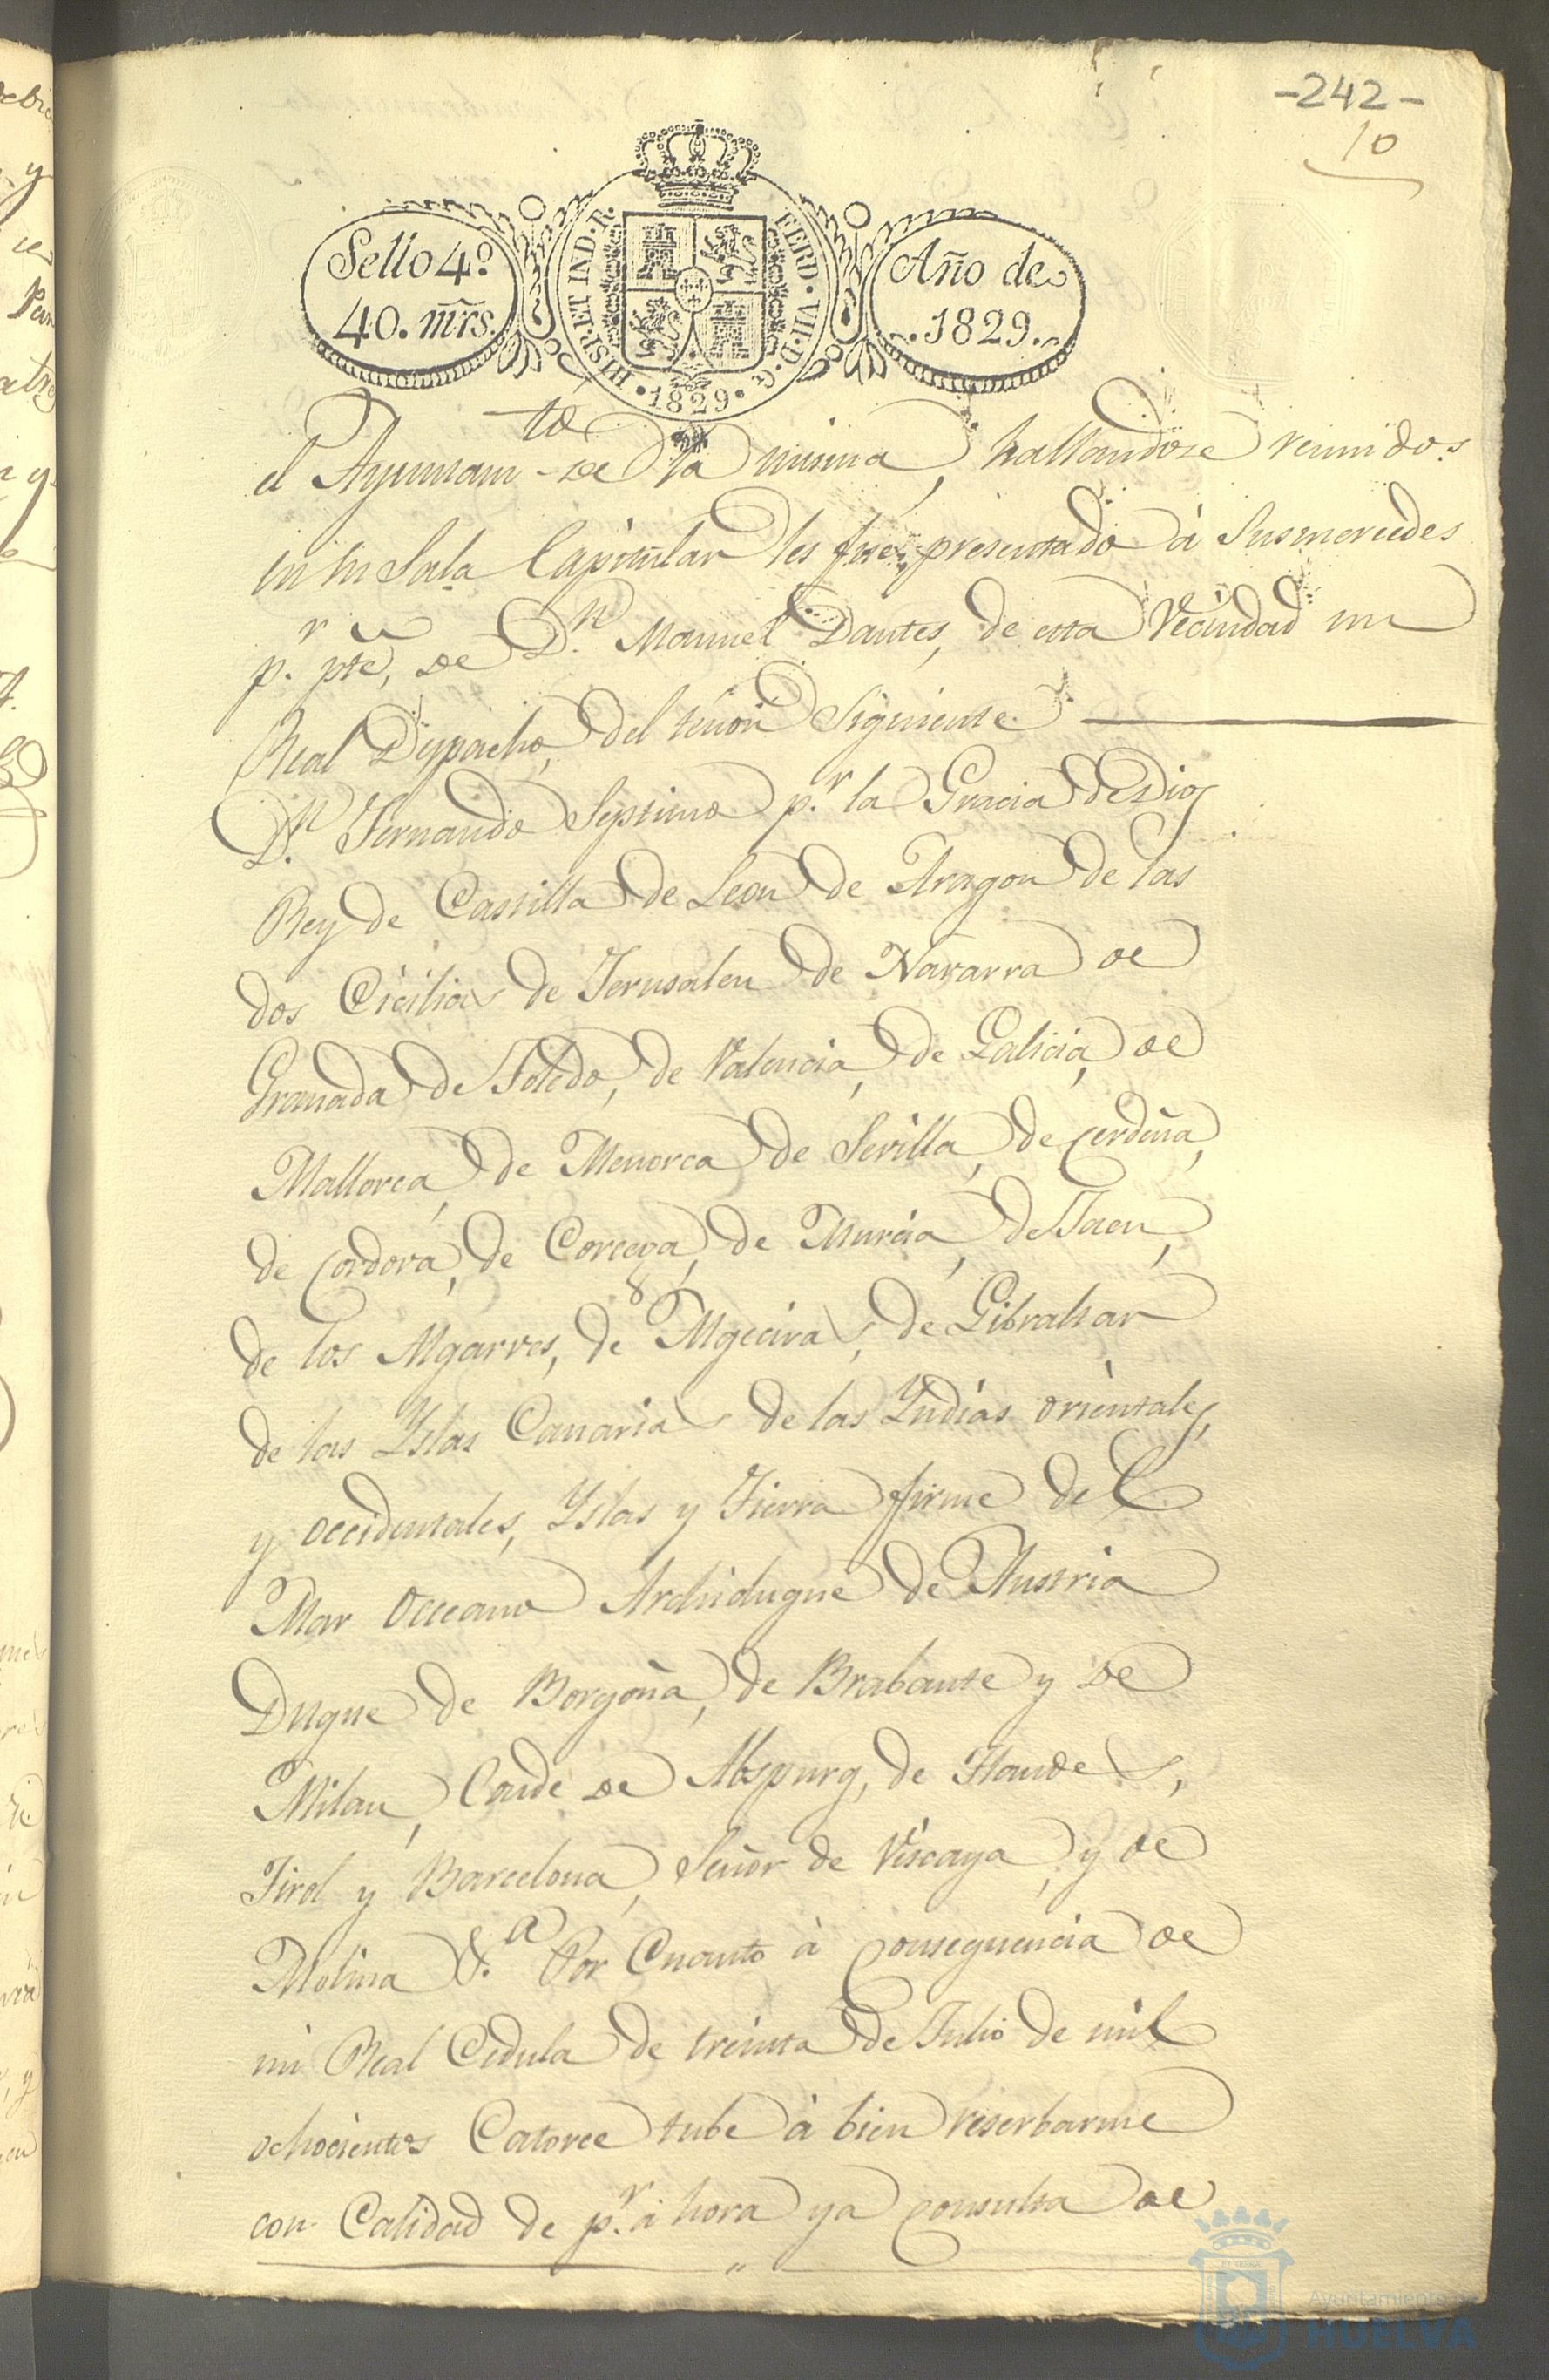 -242-
10
Sello 4º
40. mrs.
HISP. ET IND. R. FERD. VII. D. G.
1829
Año de
1829
el Ayuntamto de la misma, hallandose reunidos
en su Sala Capitular les fue presentado á Susmercedes
p.r pte, de D.n Manuel Dantes, de esta Vecindad un
Real Despacho, del tenor Siguiente
D.n Fernando Septimo p.r la Gracia de Dios
Rey de Castilla de Leon de Aragon de las
dos Cicilias de Jerusalen de Navarra de
Granada de Toledo, de Valencia, de Galicia, de
Mallorca, de Menorca de Sevilla, de Cerdeña,
de Cordova, de Corcega, de Murcia, de Jaen,
de los Algarves, de Algeciras, de Gibraltar
de las Yslas Canarias de las Yndias orientales,
y occidentales, Yslas y Tierra firme del
Mar Occeano Archiduque de Austria
Duque de Borgoña, de Brabante y de
Milan, Conde de Abspurg, de Flandes,
Tirol y Barcelona, Señor de Viscaya, y de
Molina &.a Por Cuanto à consequencia de
mi Real Cedula de treinta de Julio de mil
ochocientos Catorce tube à bien reserbarme
con Calidad de p.r à hora ya consulta de
Ayuntamiento de
HUELVA